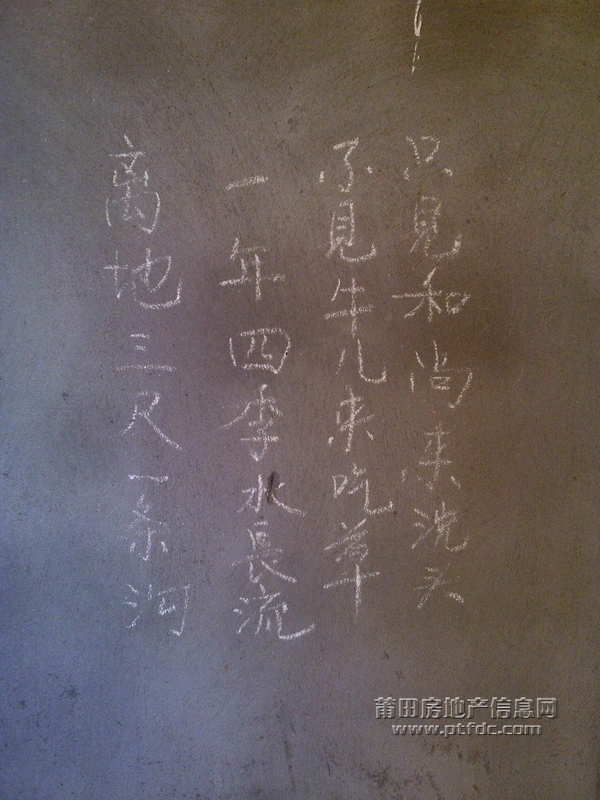 离地三尺一条河
一年四季水長流
不見牛儿来吃草
只見和尚来洗头
莆田房地产信息网
www.ptfdc.com